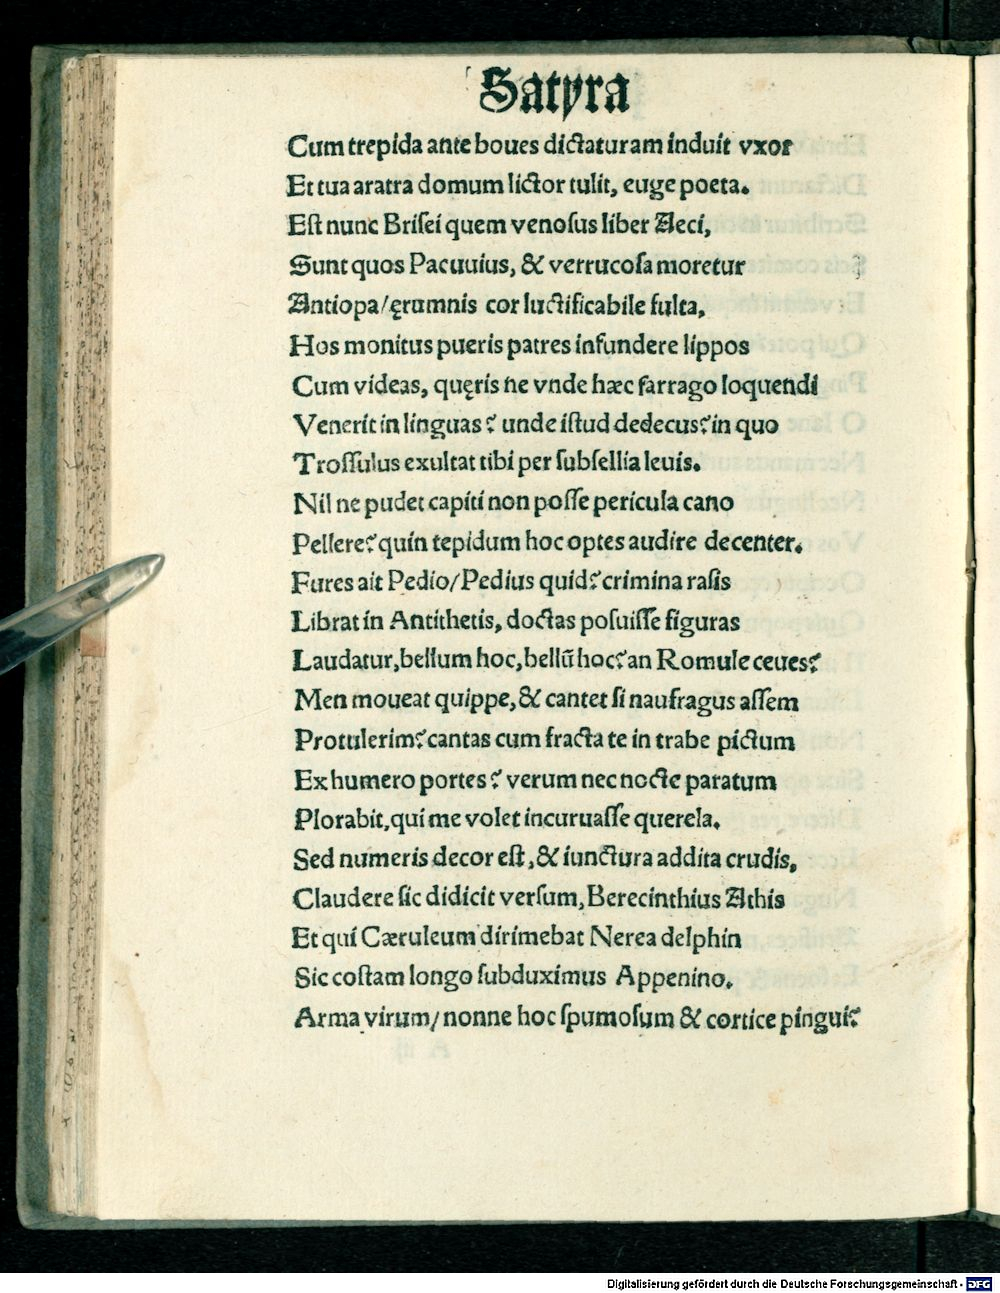 Satyra
Cum trepida ante boues dictaturam induit vxor
Et tua aratra domum lictor tulit, euge poeta.
Est nunc Brisei quem venosus liber Aeci,
Sunt quos Pacuuius, & verrucosa moretur
Antiopa/ęrumnis cor luctificabile fulta.
Hos monitus pueris patres infundere lippos
Cum videas, quęris ne vnde hæc farrago loquendi
Venerit in linguas? unde istud dedecus? in quo
Trossulus exultat tibi per subsellia leuis.
Nil ne pudet capiti non posse pericula cano
Pellere? quin tepidum hoc optes audire decenter.
Fures ait Pedio/Pedius quid? crimina rasis
Librat in Antithetis, doctas posuisse figuras
Laudatur, bellum hoc, bellũ hoc? an Romule ceues?
Men moueat quippe, & cantet si naufragus assem
Protulerim? cantas cum fracta te in trabe pictum
Ex humero portes? verum nec nocte paratum
Plorabit, qui me volet incuruasse querela.
Sed numeris decor est, & iunctura addita crudis,
Claudere sic didicit versum, Berecinthius Athis
Et qui Cæruleum dirimebat Nerea delphin
Sic costam longo subduximus Appenino.
Arma virum/ nonne hoc spumosum & cortice pingui?
Digitalisierung gefördert durch die Deutsche Forschungsgemeinschaft - DFG